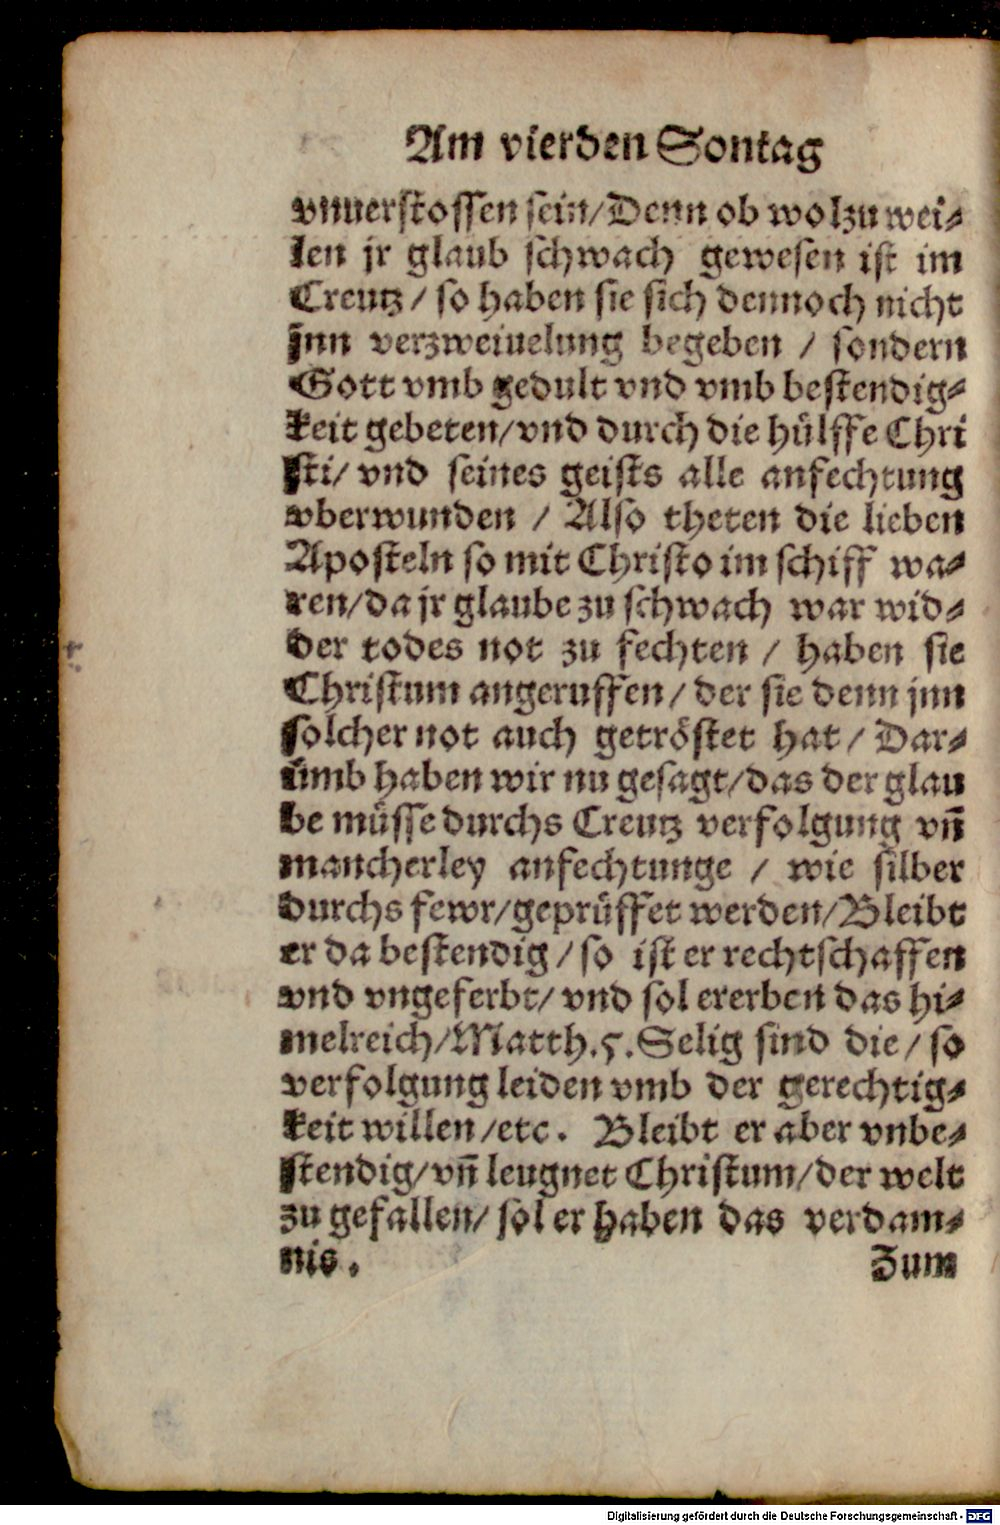 Am vierden Sontag
vnuerstossen sein/Denn ob wol zu wei⸗
len jr glaub schwach gewesen ist im
Creutz / so haben sie sich dennoch nicht
jnn verzweiuelung begeben / sondern
Gott vmb gedult vnd vmb bestendig⸗
keit gebeten/vnd durch die hülffe Chri
sti/ vnd seines geists alle anfechtung
vberwunden / Also theten die lieben
Aposteln so mit Christo im schiff wa⸗
ren/da jr glaube zu schwach war wid⸗
der todes not zu fechten / haben sie
Christum angeruffen/ der sie denn jnn
solcher not auch getröstet hat / Dar⸗
ümb haben wir nu gesagt/das der glau
be müsse durchs Creutz verfolgung vn̄
mancherley anfechtunge / wie silber
durchs fewr/geprüffet werden/Bleibt
er da bestendig / so ist er rechtschaffen
vnd vngeferbt/ vnd sol ererben das hi⸗
melreich/Matth.5. Selig sind die / so
verfolgung leiden vmb der gerechtig⸗
keit willen /etc. Bleibt er aber vnbe⸗
stendig/vn̄ leugnet Christum/der welt
zu gefallen/ sol er haben das verdam⸗
nis. Zum
Digitalisierung gefördert durch die Deutsche Forschungsgemeinschaft - DFG